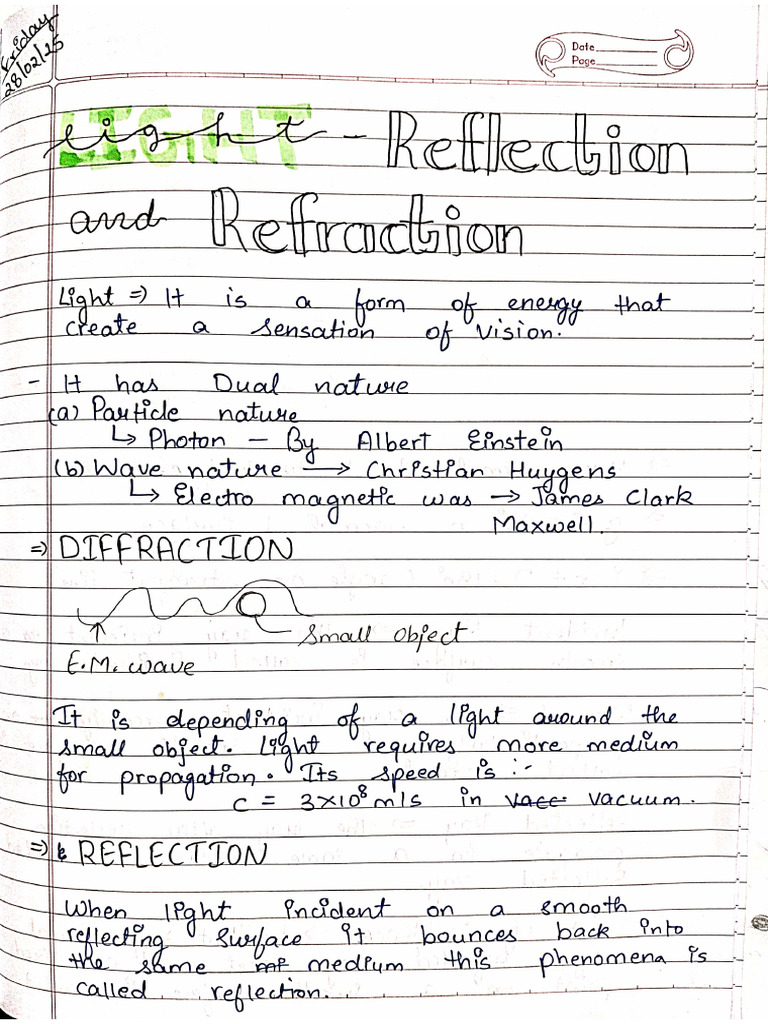 Friday
28/02/25
Date
Page
Light - Reflection
and Refraction
Light ⇒ It is a form of energy that
create a sensation of vision.
- It has Dual nature
(a) Particle nature
↳ Photon - By Albert Einstein
(b) Wave nature → Christian Huygens
↳ Electro magnetic was → James Clark
Maxwell.
⇒ DIFFRACTION
small object
E.M. wave
It is depending of a light around the
small object. Light requires more medium
for propagation. Its speed is :-
c = 3×10⁸ m/s in vacc vacuum.
⇒ REFLECTION
When light incident on a smooth
reflecting surface it bounces back into
the same medium this phenomena is
called reflection.